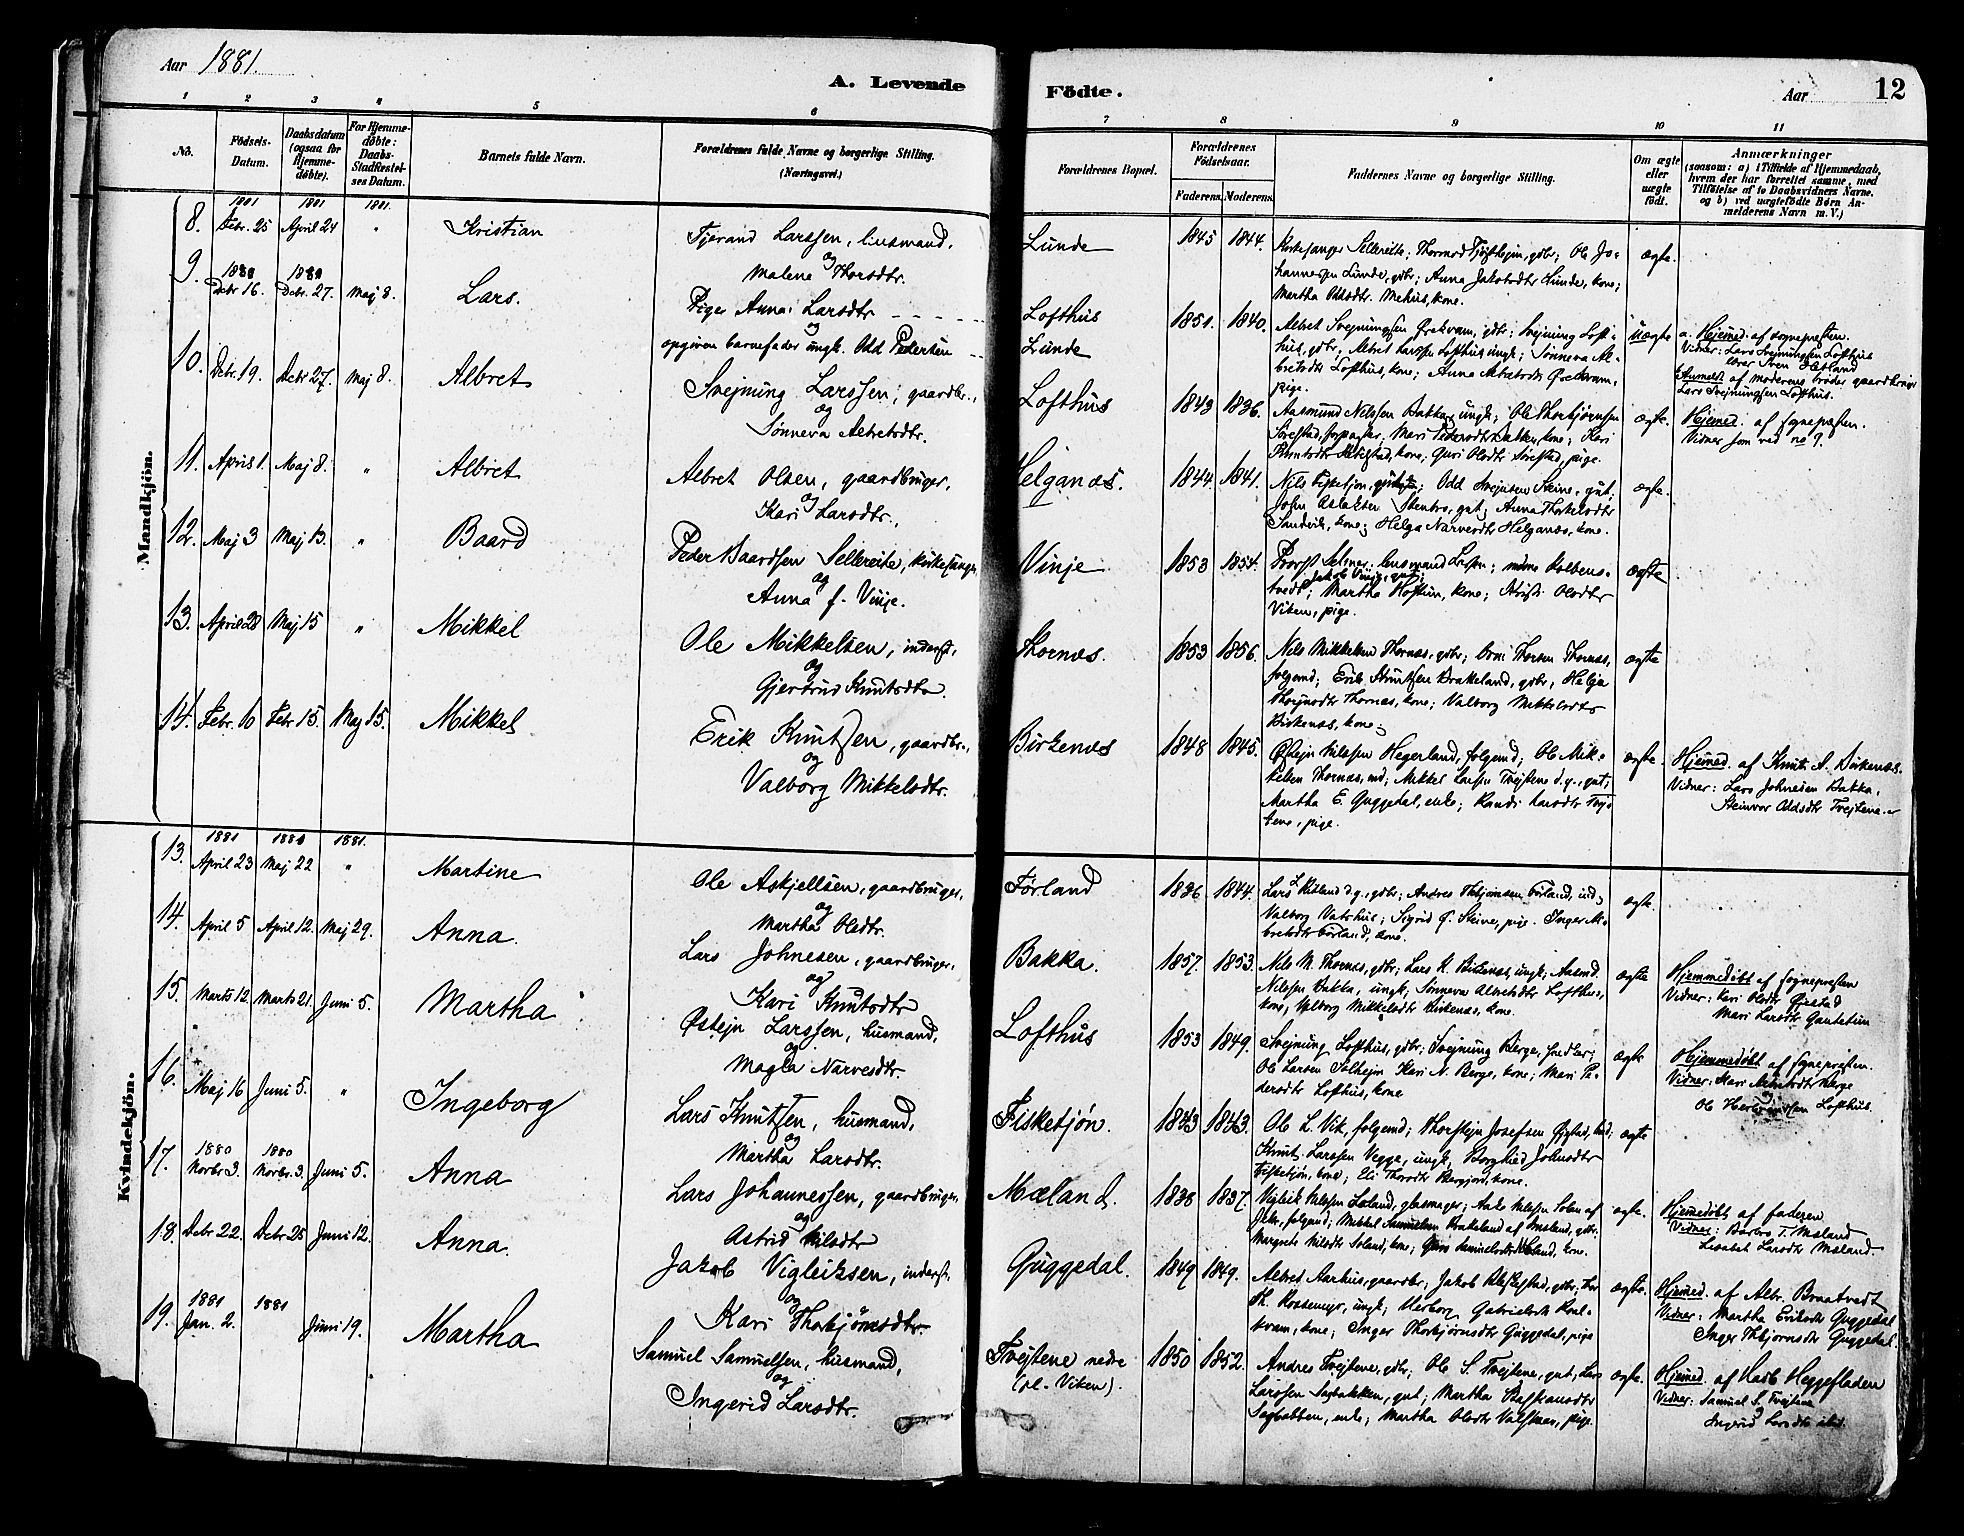 Aar 1881.
A. Levende Födte.
Aar 12
1 2 3 4 5 6 7 8 9 10 11
No.
Födsels-Datum.
Daabsdatum (ogsaa for Hjemme-döbte).
For Hjemme-döbte: Daabs-Stadfæstel-ses Datum.
Barnets fulde Navn.
Forældrenes fulde Navne og borgerlige Stilling. (Næringsvei.)
Forældrenes Bopæl.
Forældrenes Födselsaar.
Faderens. Moderens.
Faddernes Navne og borgerlige Stilling.
Om ægte eller uægte födt.
Anmærkninger
(saasom: a) i Tilfælde af Hjemmedaab,
hvem der har forrettet samme, med
Tilföielse af to Daabsvidners Navne.
og b) ved uægtefödte Börn An-
melderens Navn m. V.)
Mandkjön.
1881 1881 1881.
8. Febr. 25 April 24 " Kristian
Tjerand Larssen, husmand,
og
Malene Thorsdtr.
Lunde 1845 1844.
Kirkesanger Sellereite; Thormod gdbr; Ole Jo-
hannessen Lunde, gdbr; Anna Jakobsdtr Lunde, kone;
Martha Oddsdtr. Mehus, kone.
ægte.
9. 1880 Debr 16. 1880 Debr. 27. Maj 8. Lars.
Pige Anna Larsdtr
og
opgiven barnefader ungk. Odd Pedersen
Lofthus 1851. 1840.
Lunde
Albret Svejnungsen Ørekvam, gdbr; Svejnung Loft-
hus, gdbr; Albret Larssen Lofthus, ungk; Sønneva Al-
bretsdtr Lofthus, kone; Anna Albretsdtr Ørekvam,
pige.
uægte
a. Hjemmed. af sognepresten.
Vidner: Lars Svejnungsen Lofthus
lærer Iven Hetland
b. Anmeldt af moderens broder gaardbruger
Lars Svejnungsen Lofthus.
10. Debr. 19. Debr 27. Maj 8. Albret
Svejnung Larssen, gaardbr.,
og
Sønneva Albretsdtr.
Lofthus 1843 1836.
Aasmund Nilssen Bakka, ungk; Ole Thorbjørnsen
Sørestad, forpagter; Mari Pedersdtr Bakka, kone; Kari
kone; Guri Olsdtr Sørestad, pige.
ægte.
Hjemed. af sognepresten.
Vidner som ved no 9.
11. April 1. Maj 8. " Albret
Albret Olsen, gaardbruger,
og
Kari Larsdtr.,
Helganæs. 1844. 1841.
Nils Fisketjøn, Odd Svejnsen Steine, gut;
John Aslaksen Stenbro, gut; Anna Thorkelsdtr
Sandvik, kone; Helga Narvesdtr Helganæs, kone.
ægte.
12. Maj 3 Maj 13. " Baard
Peder Baardsen Sellereite, kirkesanger
og
Anna f. Vinje.
Vinje 1853 1854.
Provst Selmer; lensmand
Jakob Vinje, gut;
Martha Hoftun, kone; Kristi Olsdtr
Viken, pige.
ægte
13. April 28 Maj 15 " Mikkel
Ole Mikkelsen, inderst,
og
Gjertrud Knutsdtr.
Thornæs. 1853 1856.
Nils Mikkelsen Thornæs, gdbr; Thornæs,
folgemd; Erik Knutsen Brakeland, gdbr; Helje
Thornæs, kone; Valborg Mikkelsdtr
Birkenæs, kone.
ægte
14. Febr. 10 Febr 15. Maj 15. Mikkel
Erik Knutsen, gaardbr.,
og
Valborg Mikkelsdtr.
Birkenæs 1848 1845.
Østejn Nilssen Hegerland, folgemd; Ole Mik-
kelsen Thornæs, ind; Mikkel Larssen Tvejtene d.y., gut;
Martha E. Guggedal, enke; Randi Larsdtr Tvej-
tene, pige.
ægte.
Hjemed. af Knut A. Birkenæs.
Vidner: Lars Johnesen Bakka,
Steinvor Oddsdtr Tvejtene.
Kvindekjön.
1881 1881 1881.
13. April 23 Maj 22 " Martine
Ole Askjellsen, gaardbruger,
og
Martha Olsdtr.
Førland 1836 1844.
Lars L. d.y., gdbr; Andres Førland, ind;
Valborg Vatshus; Sigrid O. Steine, pige. Inger Al-
bretsdtr Førland, kone.
ægte.
14. April 5 April 12. Maj 29. Anna.
Lars Johnesen, gaardbruger,
og
Kari Knutsdtr
Bakka. 1857. 1853.
Nils M. Thornæs, gdbr; Lars K. Birkenæs, ungk; Aasmd.
Nilssen Bakka, ungk; Sønneva Albretsdtr Lofthus,
kone; Valborg Mikkelsdtr Birkenæs, kone.
ægte
Hjemmedøbt af sognepresten
Vidner: Kari Olsdtr Ørestad
Mari Larsdtr
15. Marts 12. Marts 21. Juni 5. Martha
Østejn Larssen, husmand,
og
Magla Narvesdtr
Lofthus 1853 1849.
Svejnung Lofthus, gdbr; Svejnung Berge,
Ole Larsen Solhejm Kari N. Berge, kone; Mari Pe-
dersdtr Lofthus, kone
ægte
Hjemmedøbt af sognepresten.
Vidner: Kari Berge
og
Ole Lofthus.
16. Maj 16 Juni 5. " Ingeborg
Lars Knutsen, husmand,
og
Martha Larsdtr.
Fisketjøn. 1843 1843.
Ole L. Vik, folgemd; Thorstejn Josefsen Ørestad, ind;
Knut Larssen Vegge, ungk; Borghild Johnsdtr
Fisketjøn, kone; Eli Thorsdtr kone.
ægte
17. 1880 Novbr 3. 1880 Novbr. 3. Juni 5. Anna
Lars Johannessen, gaardbruger,
og
Astrid Nilsdtr
Mæland. 1838 1837.
Vigleik Nilssen glasmager; Aake Nilssen
folgmd; Mikkel Samuelsen Brakeland af Mæland, gdbr;
Margrete Nilsdtr kone; Guro Samuelsdtr Mæland, kone.
ægte.
Hjemedøbt af faderen
Vidner: Barbro T. Mæland
Lisabet Larsdtr Mæland.
18. Debr 22. Debr 25 Juni 12. Anna.
Jakob Vigleiksen, inderst,
og
Kari Thorbjørnsdtr.
Guggedal. 1849 1849.
Albret Aarhus, gaardbr; Jakob gdbr;
Th. Rossemyr, ungk; Gabrielsdtr
kone; Inger Thorbjørnsdtr Guggedal, pige
ægte.
Hjemed. af Albr. Braatvedt
Vidner: Martha Eriksdtr Guggedal
Inger Thbjørnsdtr Guggedal.
19. 1881 Jan. 2. 1881 Juni 19. Martha
Samuel Samuelsen, husmand,
og
Ingerid Larsdtr.
Tvejtene nedre 1850 1852.
(pl. Viken).
Andres Tvejtene, gdbr; Ole S. Tvejtene, gut; Lars
Larssen Sagbakken, gut; Martha Staffensdtr
Sagbakken, enke; Martha Olsdtr pige.
ægte.
Hjemed. af Heggefladen
Vidner: Samuel S. Tvejtene
og
Ingrid Larsdtr ibid.